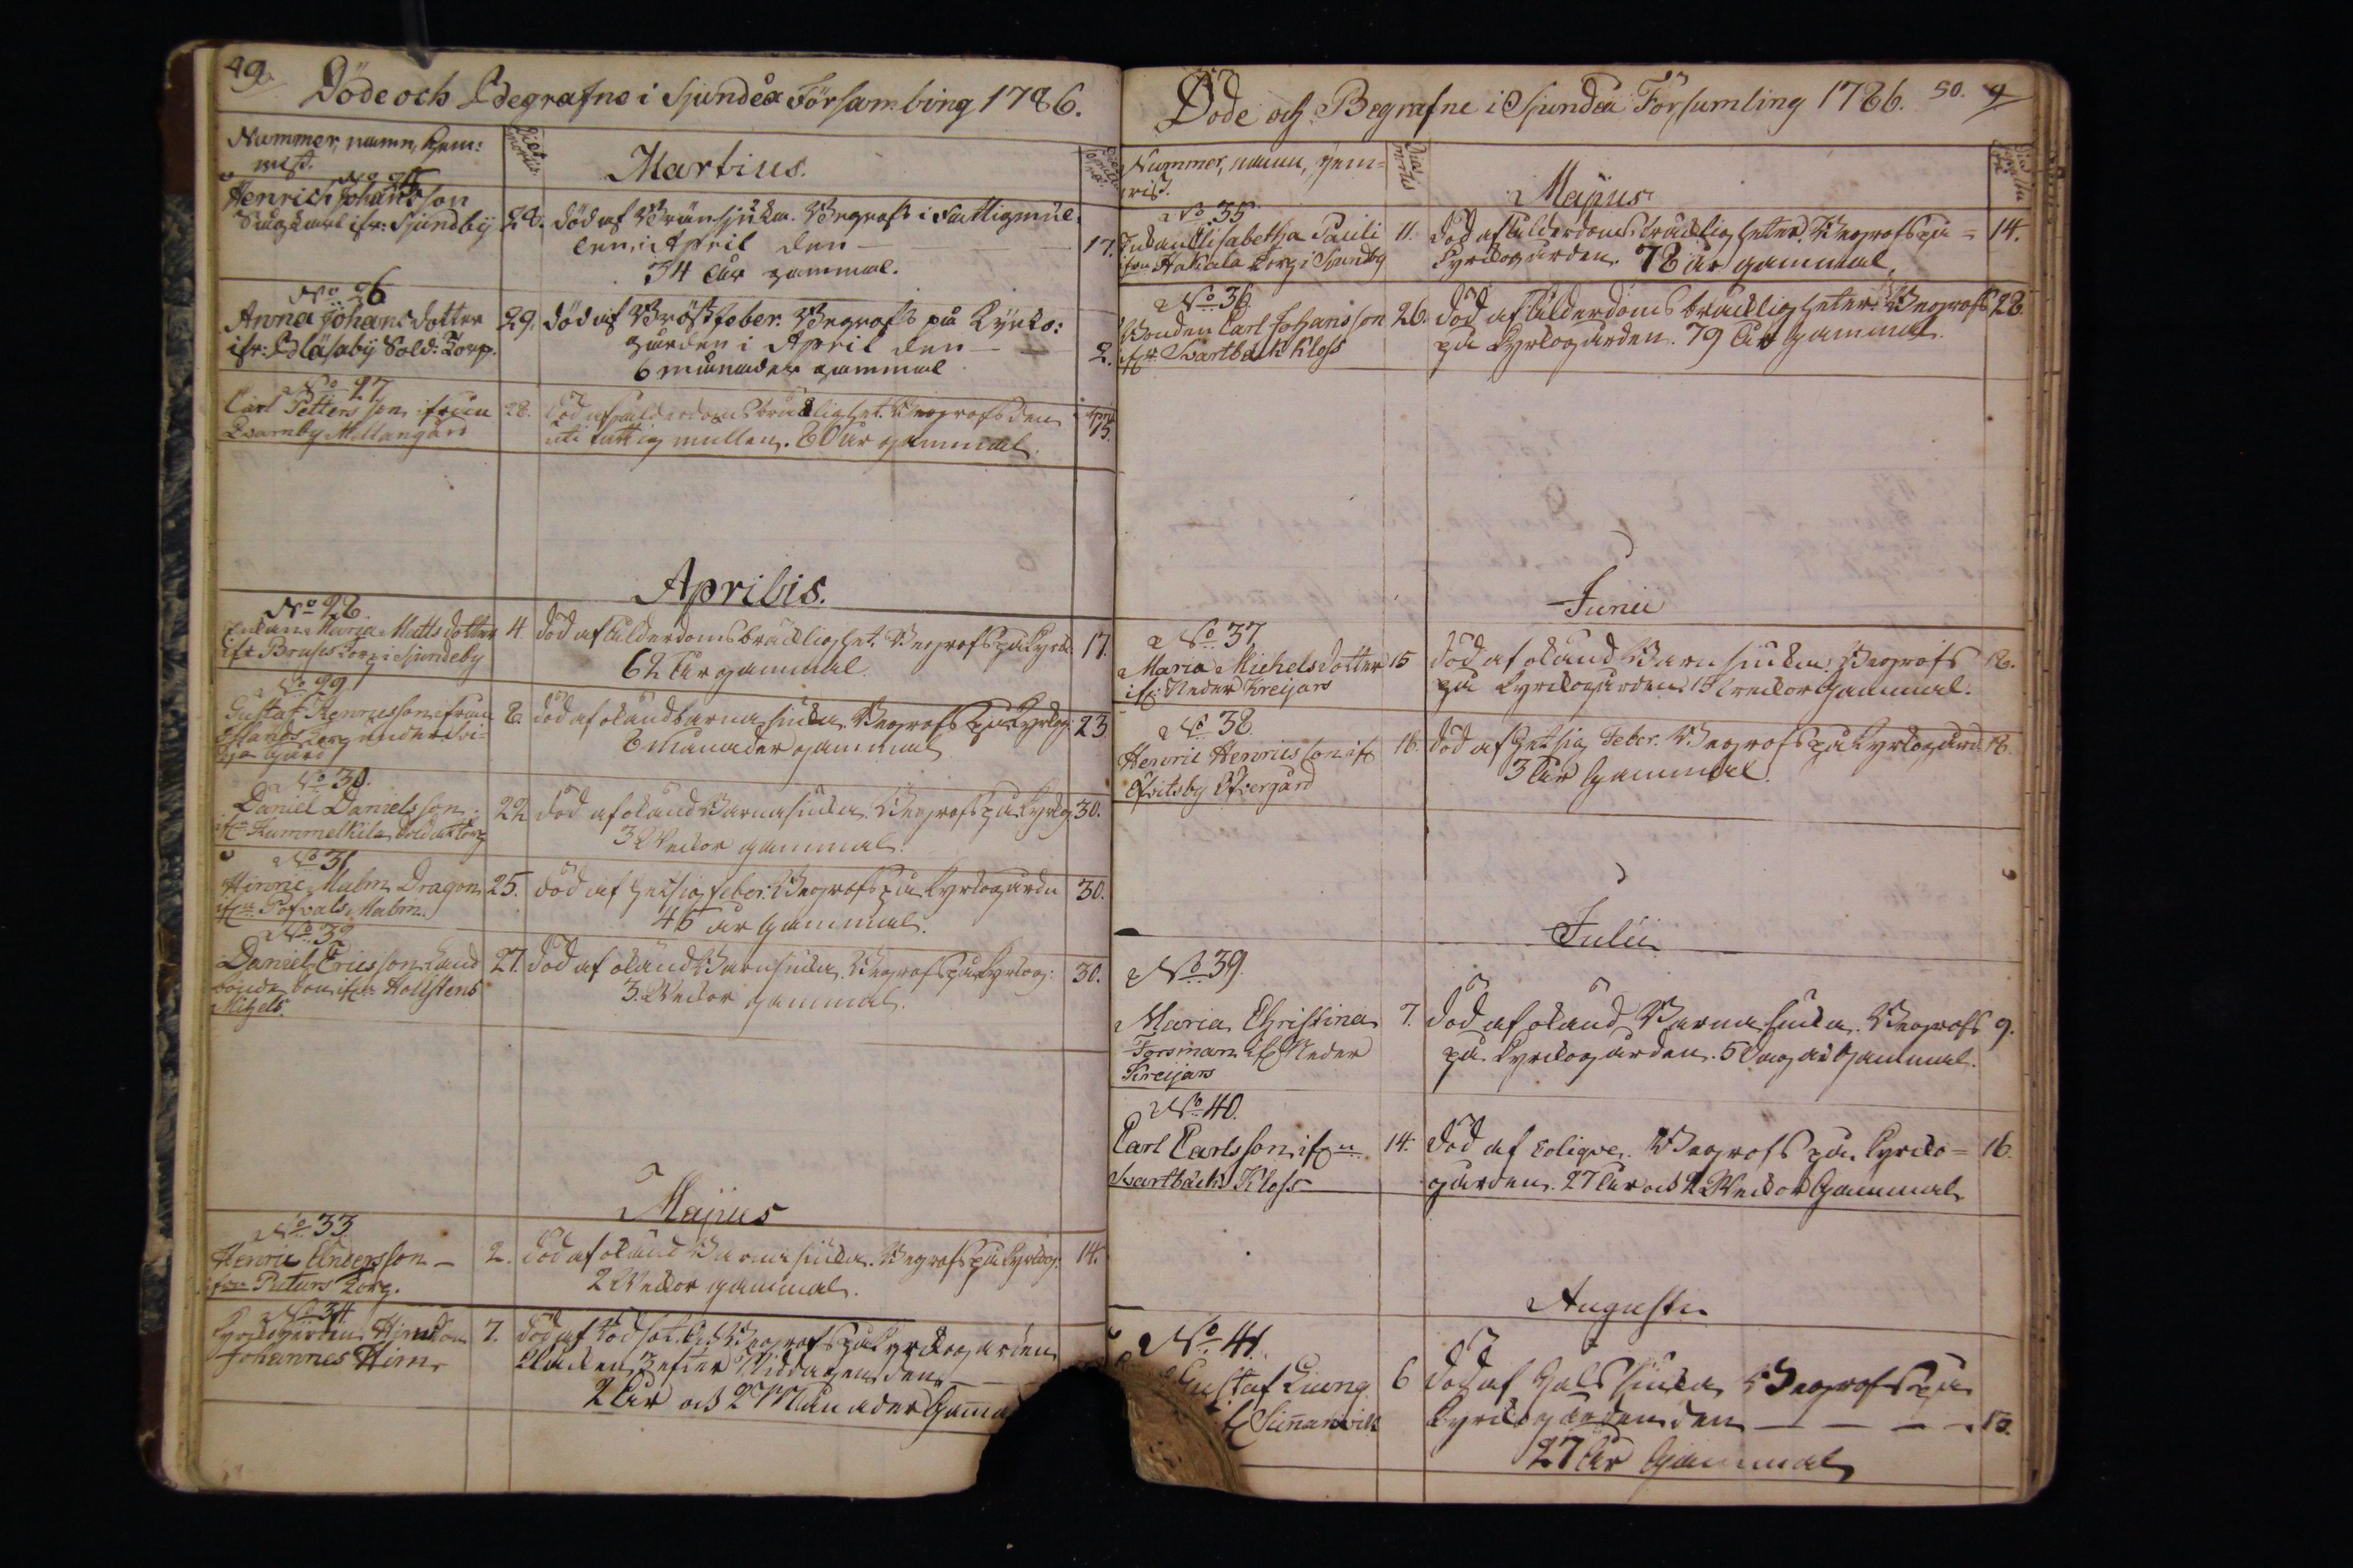 49.
Döde och Begrafne i Sjundeå Församling 1786.
Nummer, namn, hem:
vist.
Dies mortis.
Martius.
No 25
Henrich Johansson
ifr: Sjundbÿ
28. död af Bränsjuka. Begrofs i Fattigmul:
len, i April den —
17.
34 Åhr gammal.
No 26
Anna Johansdotter
ifr: Bläsabÿ Sold: Torp.
29. död af Bröstfeber. Begrofs på Kÿrko:
gården i April den — —
2.
6 månader gammal
No 27
Carl Petters son ifrån
Qvarnby Mellangård
28. Död af ålderdoms bräcklighet. Begrofs den
15.
uti fattig mullen. 80 år gammal.
Aprilis.
No 28.
Enkan Maria Mattsdotter
ifr Torp i Sjundeby
4. död af ålderdoms bräcklighet. Begrofs på Kyrk.
17.
62 år gammal.
No 29
Gustaf Henricsson ifrån
Torp under Svi=
dja Gård
8. död af okänd barna siuka Begrofs på Kyrkog:
23
8 Månader gammal
No 30.
Daniel Danielsson
ifr Kummelkila Soldat torp
22 död af okänd Barnasiuka. Begrofs på Kyrkog
30.
3 Weckor gammal.
No 31
Hinric Malm Dragon
ifrn Pofvals Malm.
25. död af hetsig feber. Begrofs på Kyrkogården
30.
45 år gammal.
No 32
Daniel Ericsson Land
bonde son ifrn Hollstens
Mikels.
27. död af okänd Barnsiuka. Begrofs på Kyrkog:
30.
3. Weckor gammal.
Majus
No 33.
Henric Andersson —
ifrn Torp.
2. död af okänd Barnasiuka. Begrofs på Kyrkog:
14.
2 Weckor gammal.
No 34
Johannes Hirn
7. död af Begrofs på Kyrckogården
Klockan 3 efter Middagen den —
2 År och 2 Månader
Döde och Begrafne i Sjundeå Församling 1786. 50.
Nummer, namn, hem=
vist.
Dies mortis
Majus
No 35
Enkan Elisabetha Pauli
ifrn Hakala torp i Sjundby
11. död af ålderdoms bräcklighetter. Begrofs på =
14.
Kyrckogården. 78 år gammal.
No 36
Bonden Carl Johansson
ifrn Svartbäck Kloss
26. död af ålderdoms bräckligheter. Begrofs
28.
på Kyrkogården. 79 år gammal.
Junii
No 37.
Maria Michelsdotter
ifr: Neder Kreijars
15 död af okänd Barnsiuka. Begrofs
18.
på Kyrckogården. 15 veckor Gammal.
No 38.
Henric Henricsson ifr
Öfvitsby Öfvergård
16. död af hetsig Feber. Begrofs på Kyrkogård.
18.
3 år Gammal.
Julii
No 39.
Maria Christina
Forsman ifr Neder
Kreijars
7. död af okänd Barnasiuka. Begrofs
9.
på Kyrckogården. 5 dagar Gammal.
No 40.
Carl Carlsson ifrn
Svartbäcks Kloss
14. död af colique. Begrofs på Kyrcko=
16.
gården. 27 år och 2 Weckor Gammal
Augusti
No 41.
Gustaf Liung
6 död af Halssiuka Begrofs på
Kyrckogården den — — — —
27 År Gammal